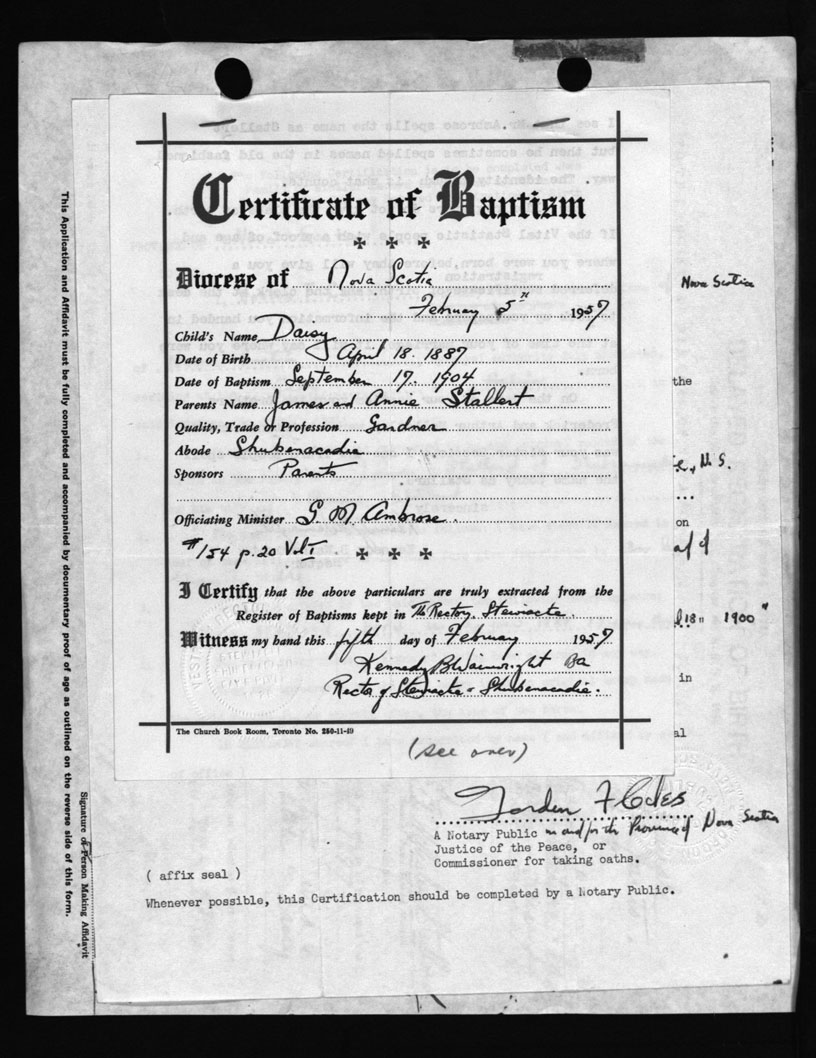 Certificate of Baptism
Diocese of Nova Scotia
February 5th 1957
Child's Name Daisy
Date of Birth April 18. 1887
Date of Baptism September 17. 1904
Parents Name James and Annie Stallert
Quality, Trade or Profession Gardner
Abode Shubenacadie
Sponsors Parents
Officiating Minister G M Ambrose.
#154 p.20 Vol I
I Certify that the above particulars are truly extracted from the
Register of Baptisms kept in The Rectory, Stewiacke
Witness my hand this fifth day of February 1957
Kennedy B Wainwright Ba
Rector of Stewiacke & Shubenacadie.
The Church Book Room, Toronto No. 250-11-49
(see over)
Nova Scotia
the
N.S.
on
of
18" 1900
in
al
A Notary Public in and for the Province of Nova Scotia
Justice of the Peace, or
Commissioner for taking oaths.
( affix seal )
Whenever possible, this Certification should be completed by a Notary Public.
This Application and Affidavit must be fully completed and accompanied by documentary proof of age as outlined on the reverse side of this form.
Signature of Person Making Affidavit